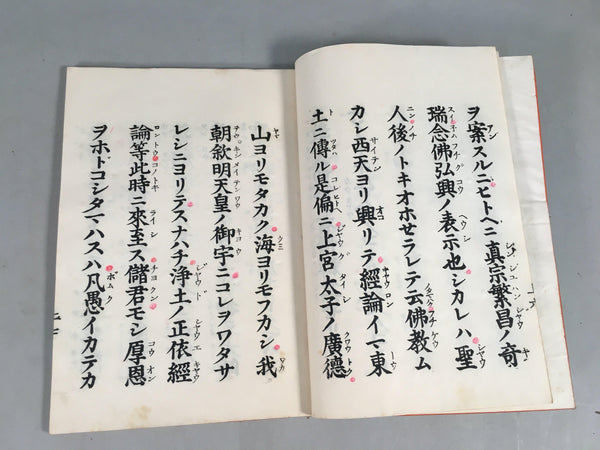 ヲ案スルニヒトヘニ真宗繁昌ノ奇
瑞念佛弘興ノ表示也シカレハ聖
人後ノトキオホセラレテ云佛教ム
カシ西天ヨリ興リテ經論イマ東
土ニ傳ル是偏ニ上宮太子ノ廣德
山ヨリモタカク海ヨリモフカシ我
朝欽明天皇ノ御宇ニコレヲワタサ
レシニヨリテスナハチ浄土ノ正依經
論等此時ニ來至ス儲君モシ厚恩
ヲホドコシタマハスハ凡愚イカテカ